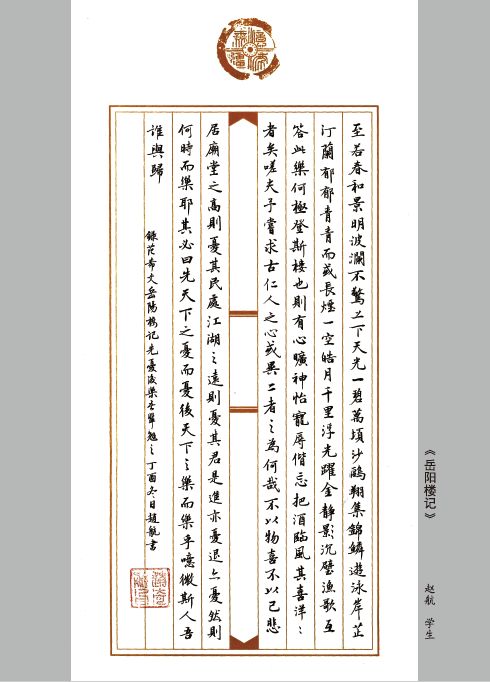 至若春和景明波瀾不驚上下天光一碧萬頃沙鷗翔集錦鱗遊泳岸芷
汀蘭郁郁青青而或長煙一空皓月千里浮光躍金靜影沉璧漁歌互
答此樂何極登斯樓也則有心曠神怡寵辱偕忘把酒臨風其喜洋〻
者矣嗟夫予嘗求古仁人之心或異二者之為何哉不以物喜不以己悲
居廟堂之高則憂其民處江湖之遠則憂其君是進亦憂退亦憂然則
何時而樂耶其必曰先天下之憂而憂後天下之樂而樂乎噫微斯人吾
誰與歸
錄范希文岳陽樓记先憂後樂勉之丁酉冬日趙航書
《岳阳楼记》
赵航 学生